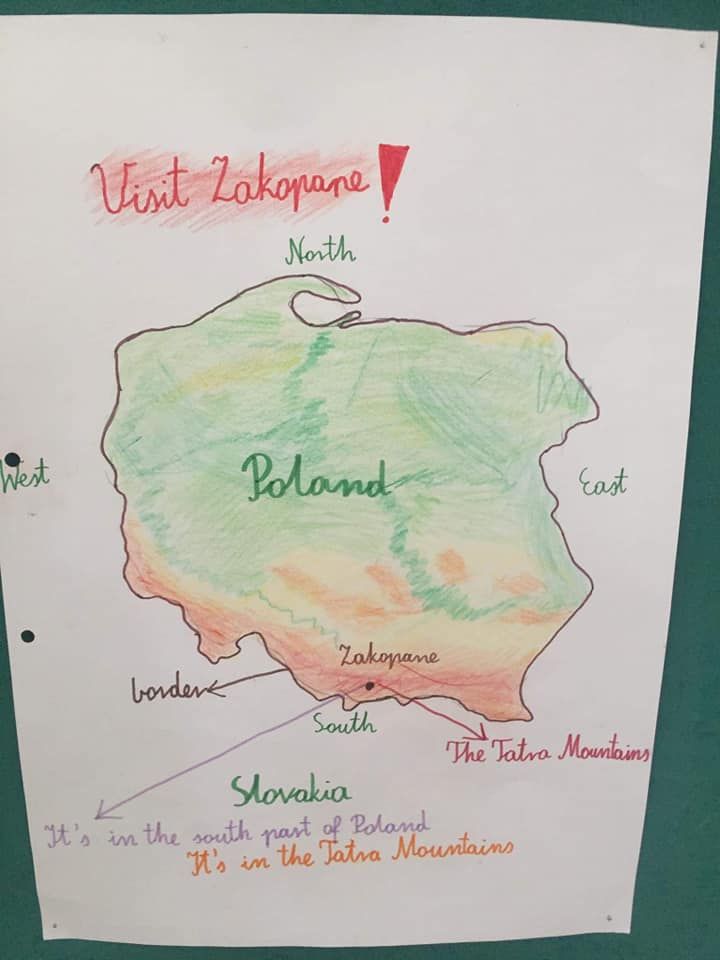 Visit Zakopane!
North
West
Poland
East
Zakopane
border
South
The Tatra Mountains
Slovakia
It's in the south part of Poland
It's in the Tatra Mountains